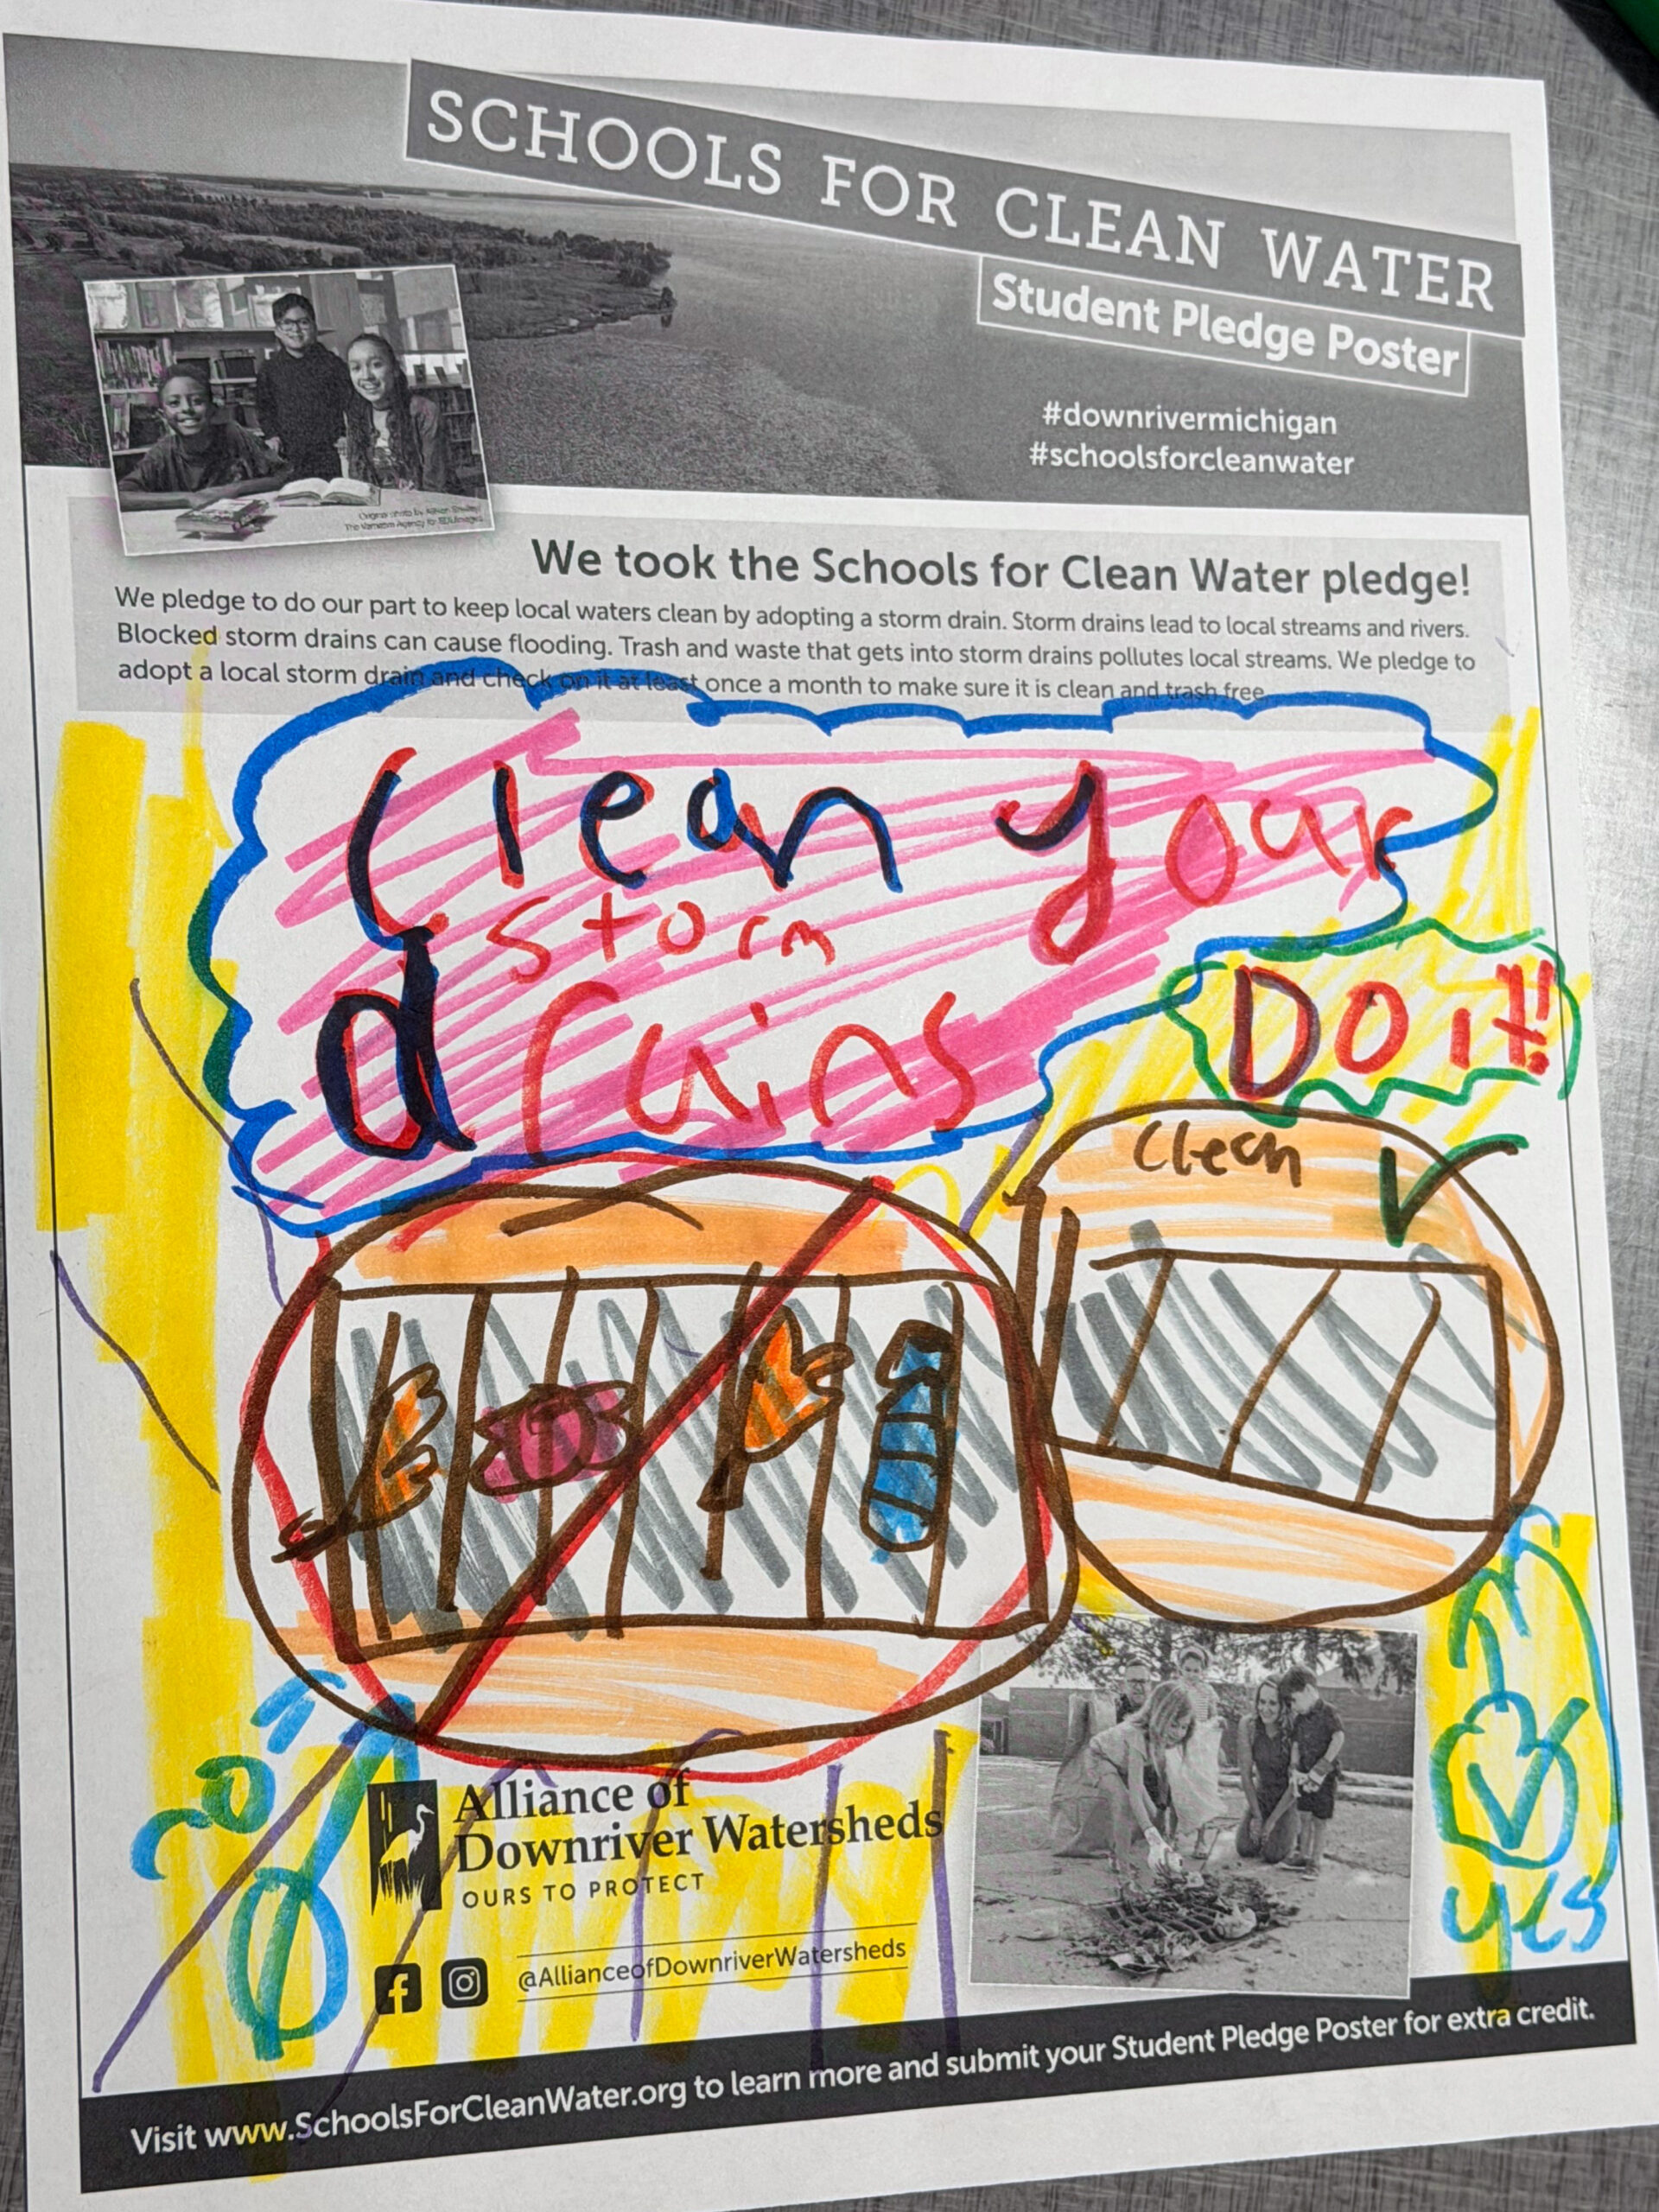 SCHOOLS FOR CLEAN WATER
Student Pledge Poster
#downrivermichigan
#schoolsforcleanwater
We took the Schools for Clean Water pledge!
We pledge to do our part to keep local waters clean by adopting a storm drain. Storm drains lead to local streams and rivers.
Blocked storm drains can cause flooding. Trash and waste that gets into storm drains pollutes local streams. We pledge to
adopt a local storm drain and check on it at least once a month to make sure it is clean and trash free.
Clean your
storm
drains
DO it!!
Clean
Alliance of
Downriver Watersheds
OURS TO PROTECT
@AllianceofDownriverWatersheds
yes
Visit www.SchoolsForCleanWater.org to learn more and submit your Student Pledge Poster for extra credit.